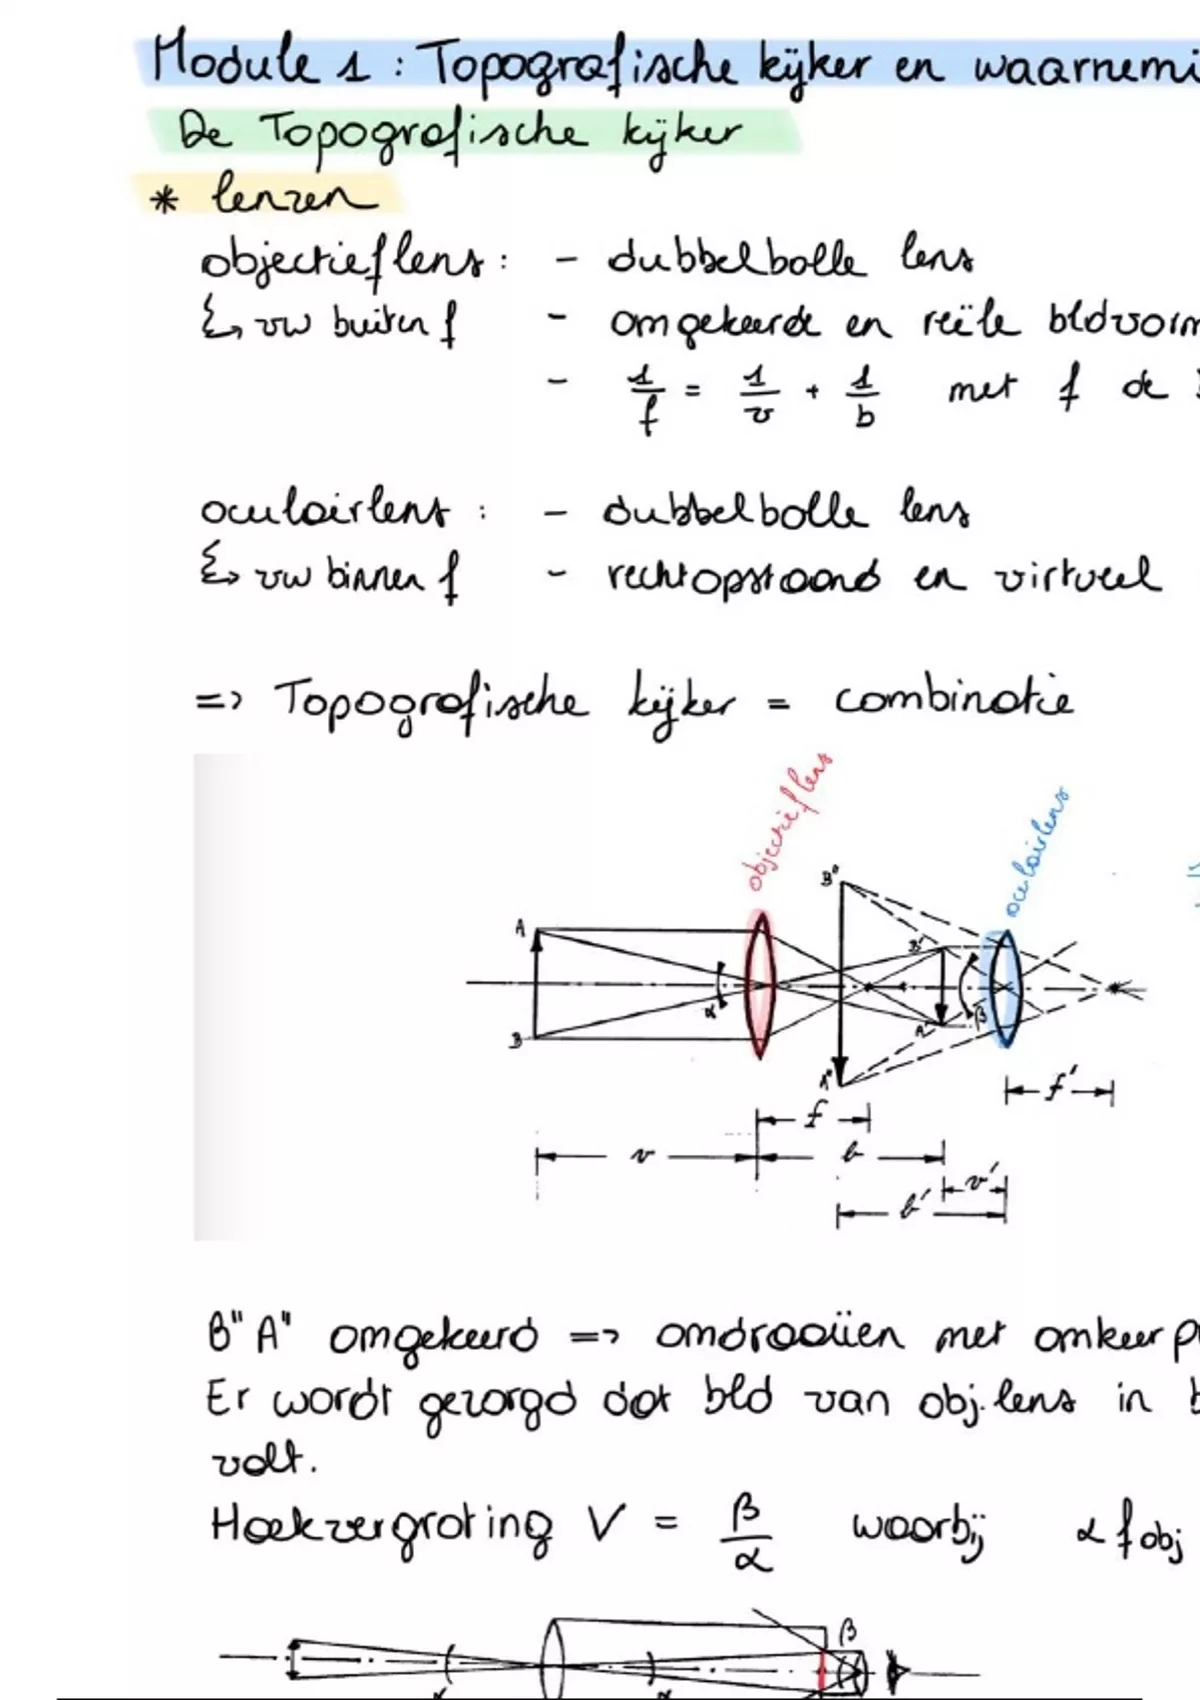 Module 1 : Topografische kijker en waarnemi
De Topografische kijker
* lenzen
objectieflens : - dubbelbolle lens
↳ vw buiten f - omgekeerde en reële bldvorm
- 1/f = 1/v + 1/b met f de
oculairlens : - dubbelbolle lens
↳ vw binnen f - rechtopstaand en virtueel
=> Topografische kijker = combinatie
objectieflens
oculairlens
B"
A
B'
α
β
B
A'
A"
f'
f
v
b
v'
b'
B" A" omgekeerd => omdraaiien met omkeer p
Er wordt gezorgd dat bld van obj. lens in b
valt.
Hoekvergroting V = β/α waarbij α f obj
β
α
α